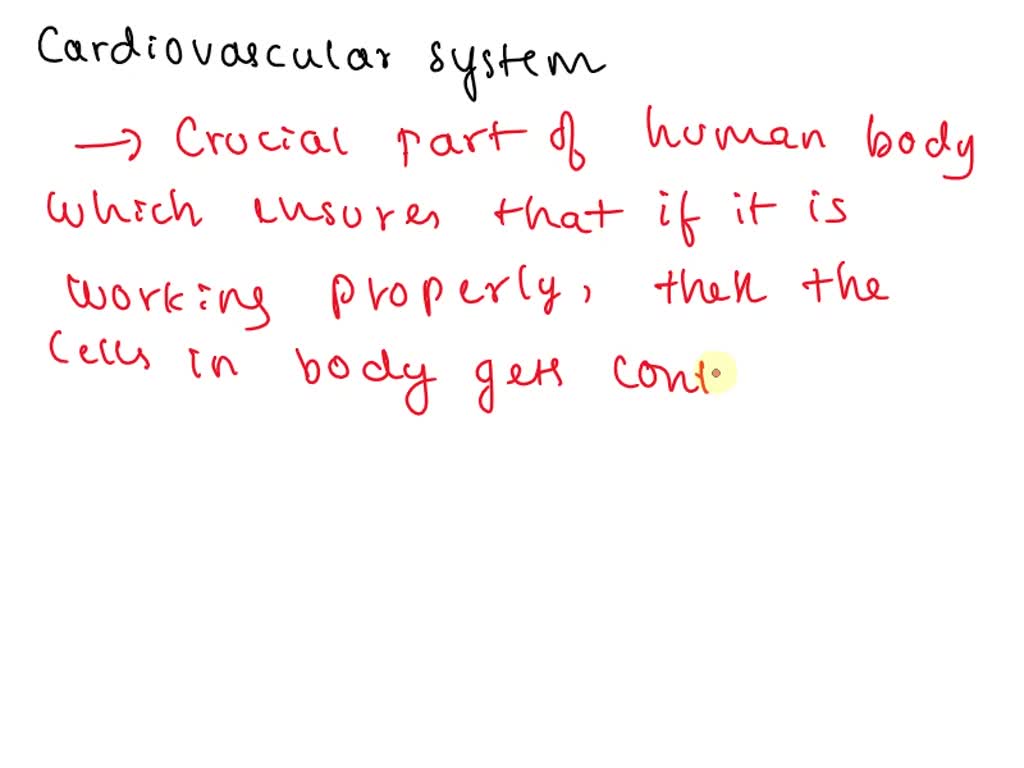 Cardiovascular system
→ Crucial part of human body
which ensures that if it is
working properly, then the
cells in body gets cont